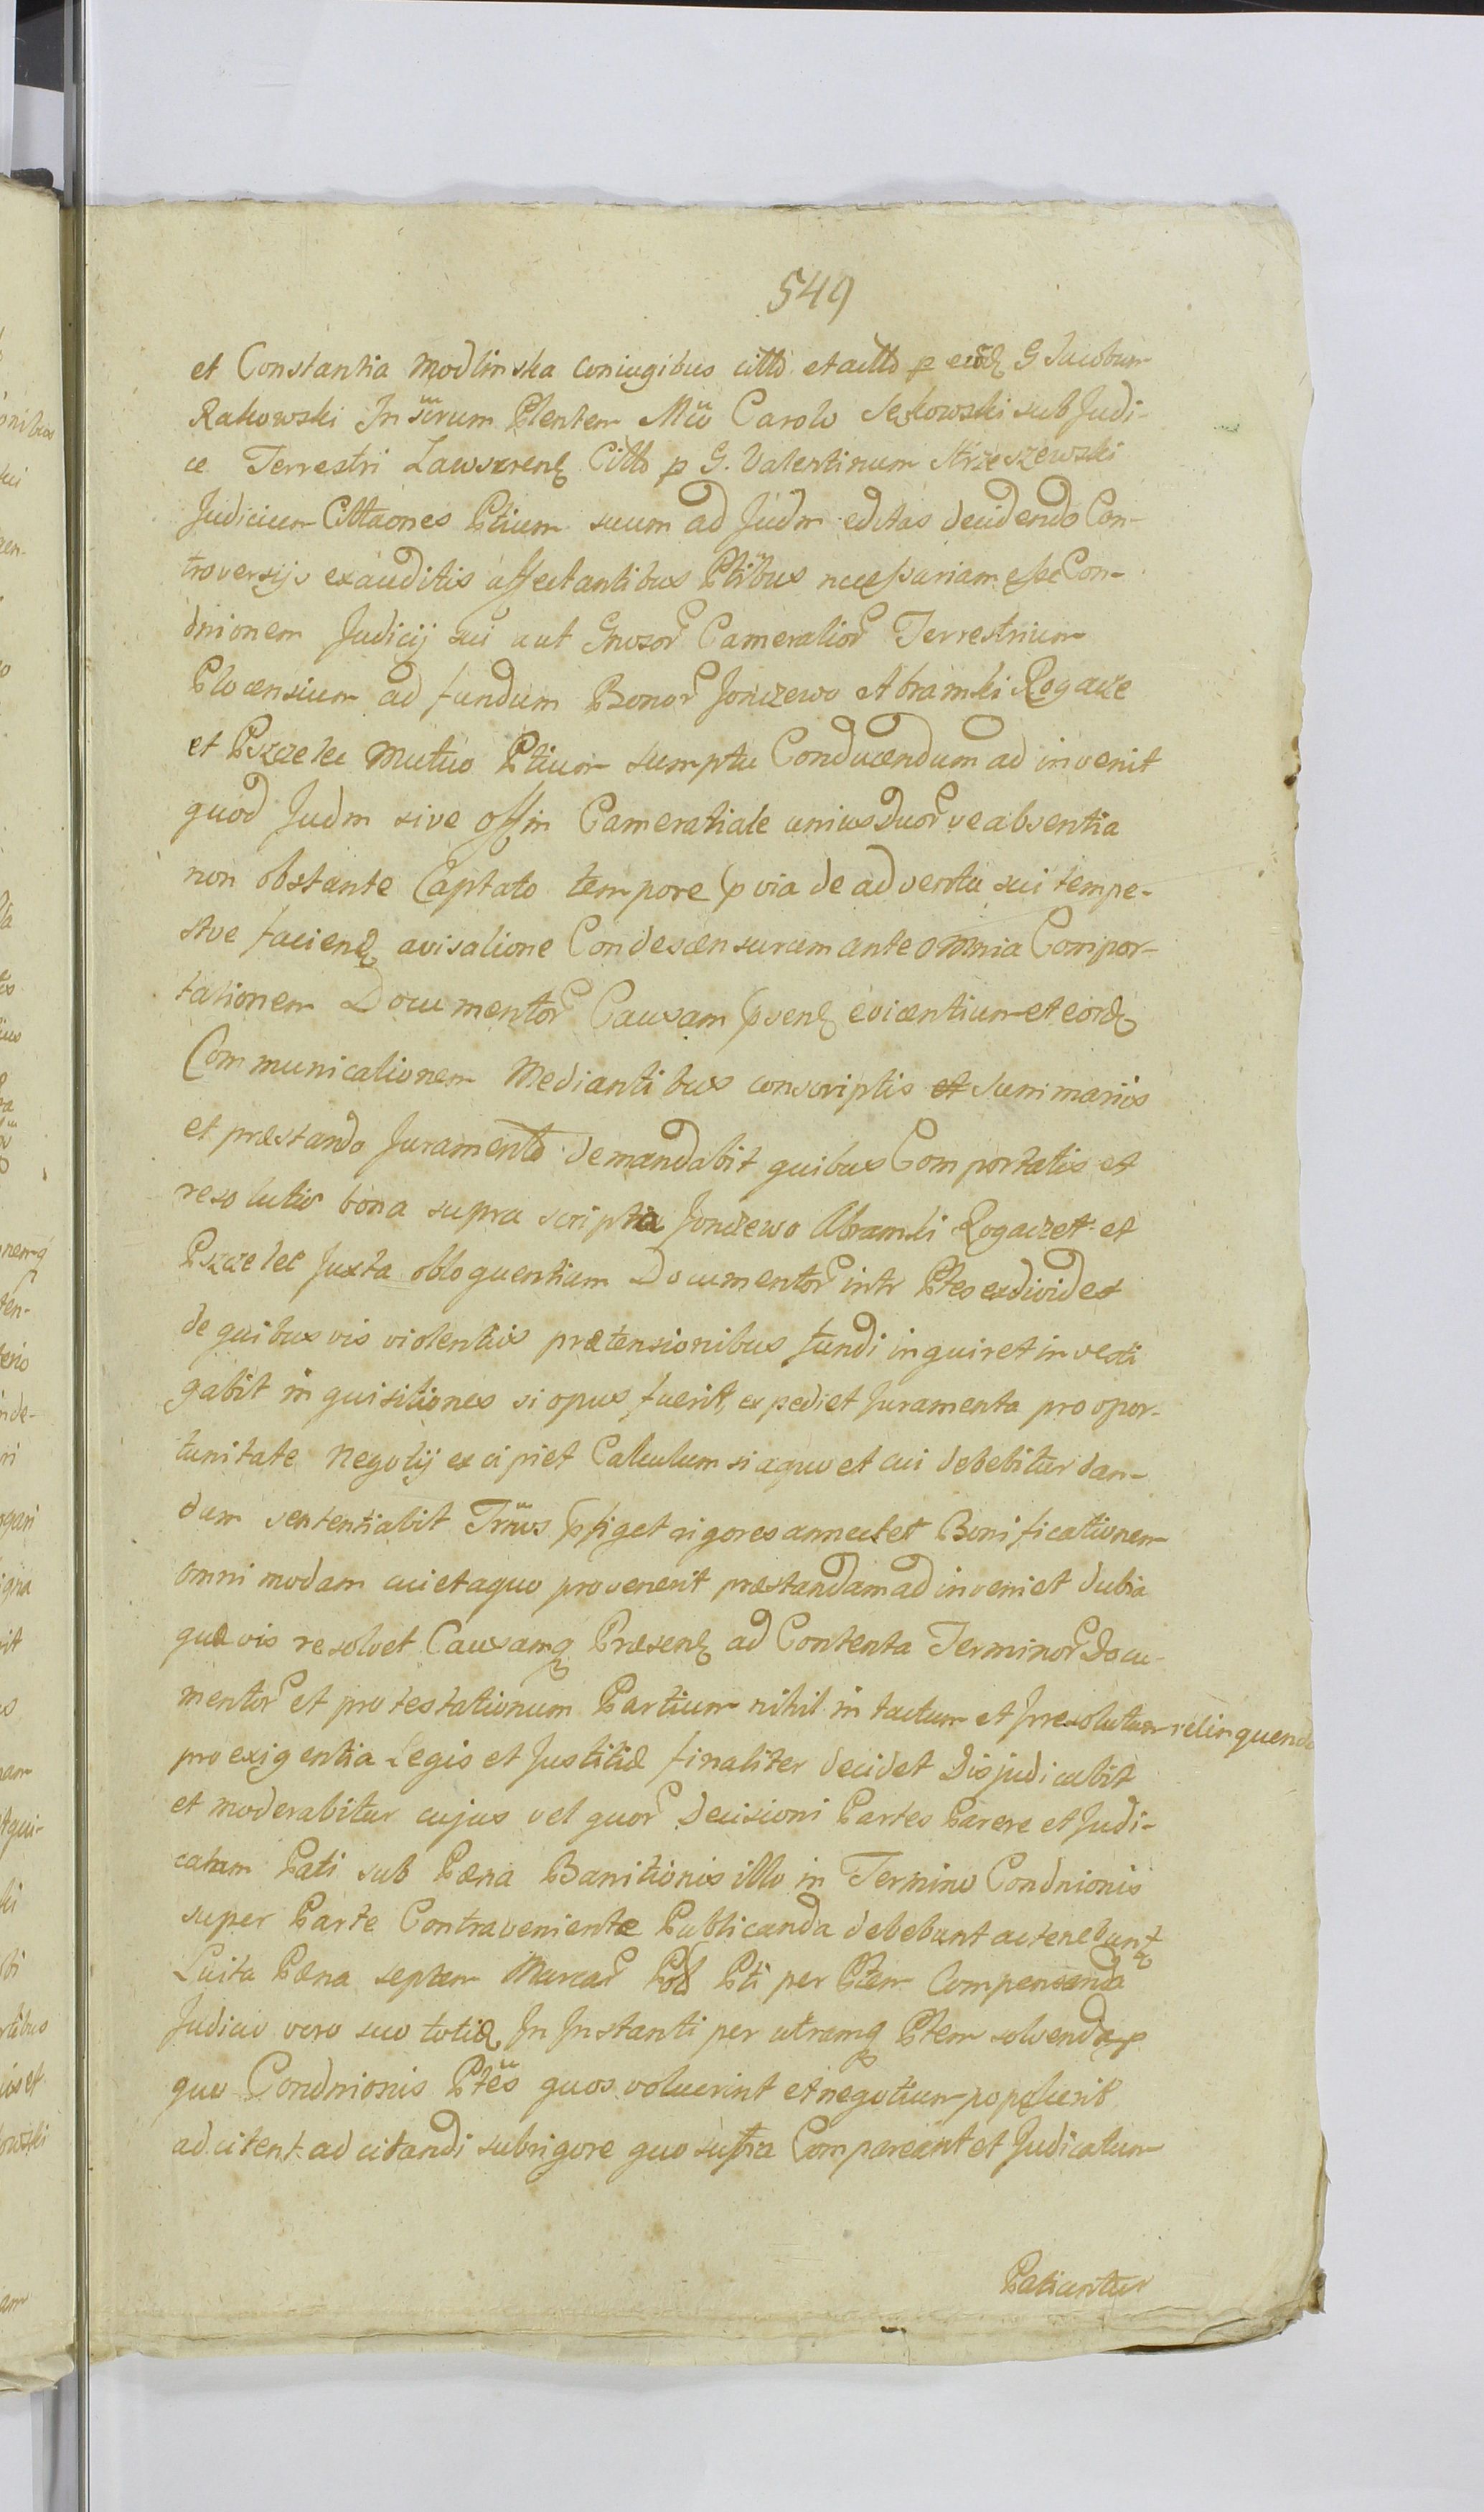 549
et Constantia Modlinska coniugibus citto et actto p eūdȩ G Jacobum
Rakowski In sûrum Plentem Mĉo Carolo Sękowski sub Judi-
ce Terrestri Zawscrenȩ Citto p G. Valentinum Strzeszewski
Judicium Cittaones Ptium suum ad Judm editas decidendo Con-
troversijs exauditis affectantibus Ptibus necessariam esse Con-
dnionem Judicij sui aut Gnoso͞r Cameralio͞r Terrestrium
Plocensium ad fundum Bono͞r Jonczewo Abramki Rogacze
et Pszczelec Mutuo Ptium sumptu Conducendum ad invenit
quod Judm sive Offm Cameratiale unius duo͞r ve absentia
non obstante Captato tempore pvia de adventu sui tempe-
stve faciend avisatione Condescensurum ante omnia Compor-
tationem Documento͞r Causam pvenȩ evicentium et eordȩ
Communicationem Mediantibus conscriptis et Summariis
et præstando Juramento demandabit quibus Comportatis et
resolutis bona supra scripta Jonczewo Abramki Rogaczet et
Pszczelec Juxta obloquentiam Documento͞r intr Ptes exdividet
de quibusvis violentiis prætensionibus fundi inquiret investi
gabit inquisitiones si opus fuerit, expediet Juramenta pro opor-
tunitate Negotij excipiet Calculum si a quo et cui debebitur dan-
dum sententiabit Trnos pfiget rigores annectet Bonificationem
omni modam cui et a quo provenerit præstandam ad inveniet dubia
quævis resolvet Causamq Præsenȩ ad Contenta Termino͞r Docu-
mento͞r et protestationum Partium nihil intactum et Irresolutum relinquendo
pro exigentia Legis et Justitiæ finaliter decidet Disjudicabit
et moderabitur cujus vel quo͞r Decisioni Partes Parere et Judi-
catum Pati sub Pæna Banitionis illo in Termino Condnionis
super Parte Contraveniente Publicanda debebunt ac tenebuntr
Luita Pæna septem Marca͞r Pol Pti per Ptem Compensanda
Judicio vero suo totiȩ In Instanti per utramq Ptem solvenda p
quo Condnionis Ptes quos voluerint et negotium poposcerit
adcitent adcitandi sub rigore quo supra Compareant et Judicatum
Patiantur